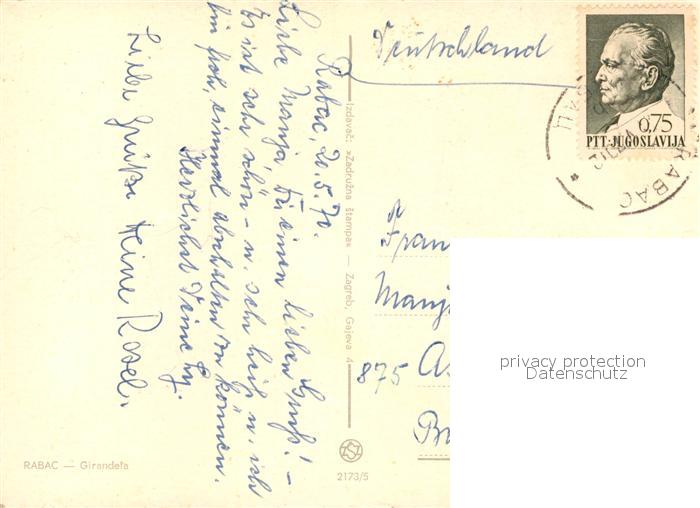 Rabac, 20.5.70.
Liebe Manja, Dir einen lieben Gruß! –
Es ist sehr schön – u. sehr heiß u. ich
bin froh, einmal abschalten zu können.
Herzlichst Deine
Liebe Grüße Deine Rosel.
RABAC — Girandela
Izdavač: »Zadružna štampa« — Zagreb, Gajeva 4
2173/5
Deutschland
0,75
PTT·JUGOSLAVIJA
RABAC
Manj
875
privacy protection
Datenschutz